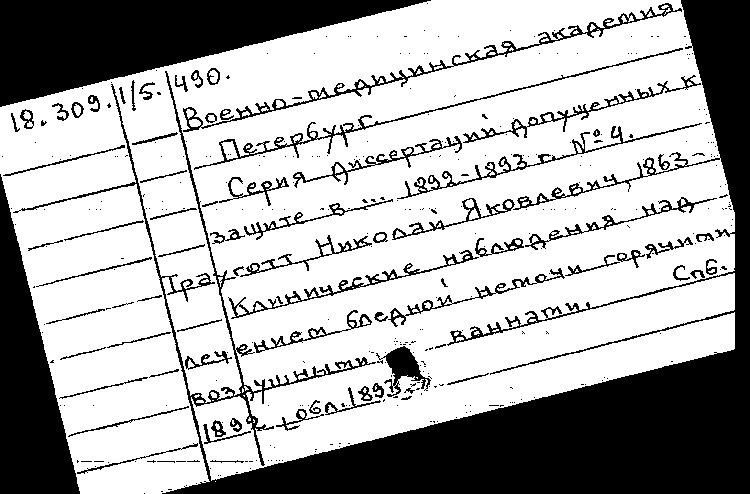 18.309. 1/5. 490.
Военно-медицинская академия.
Петербург.
Серия диссертаций допущенных к
защите в ... 1892-1893 г. № 4.
Трауготт, Николай Яковлевич, 1863-
Клинические наблюдения над
лечением бледной немочи горячими
воздушными ваннами. Спб.
1892 обл. 1893